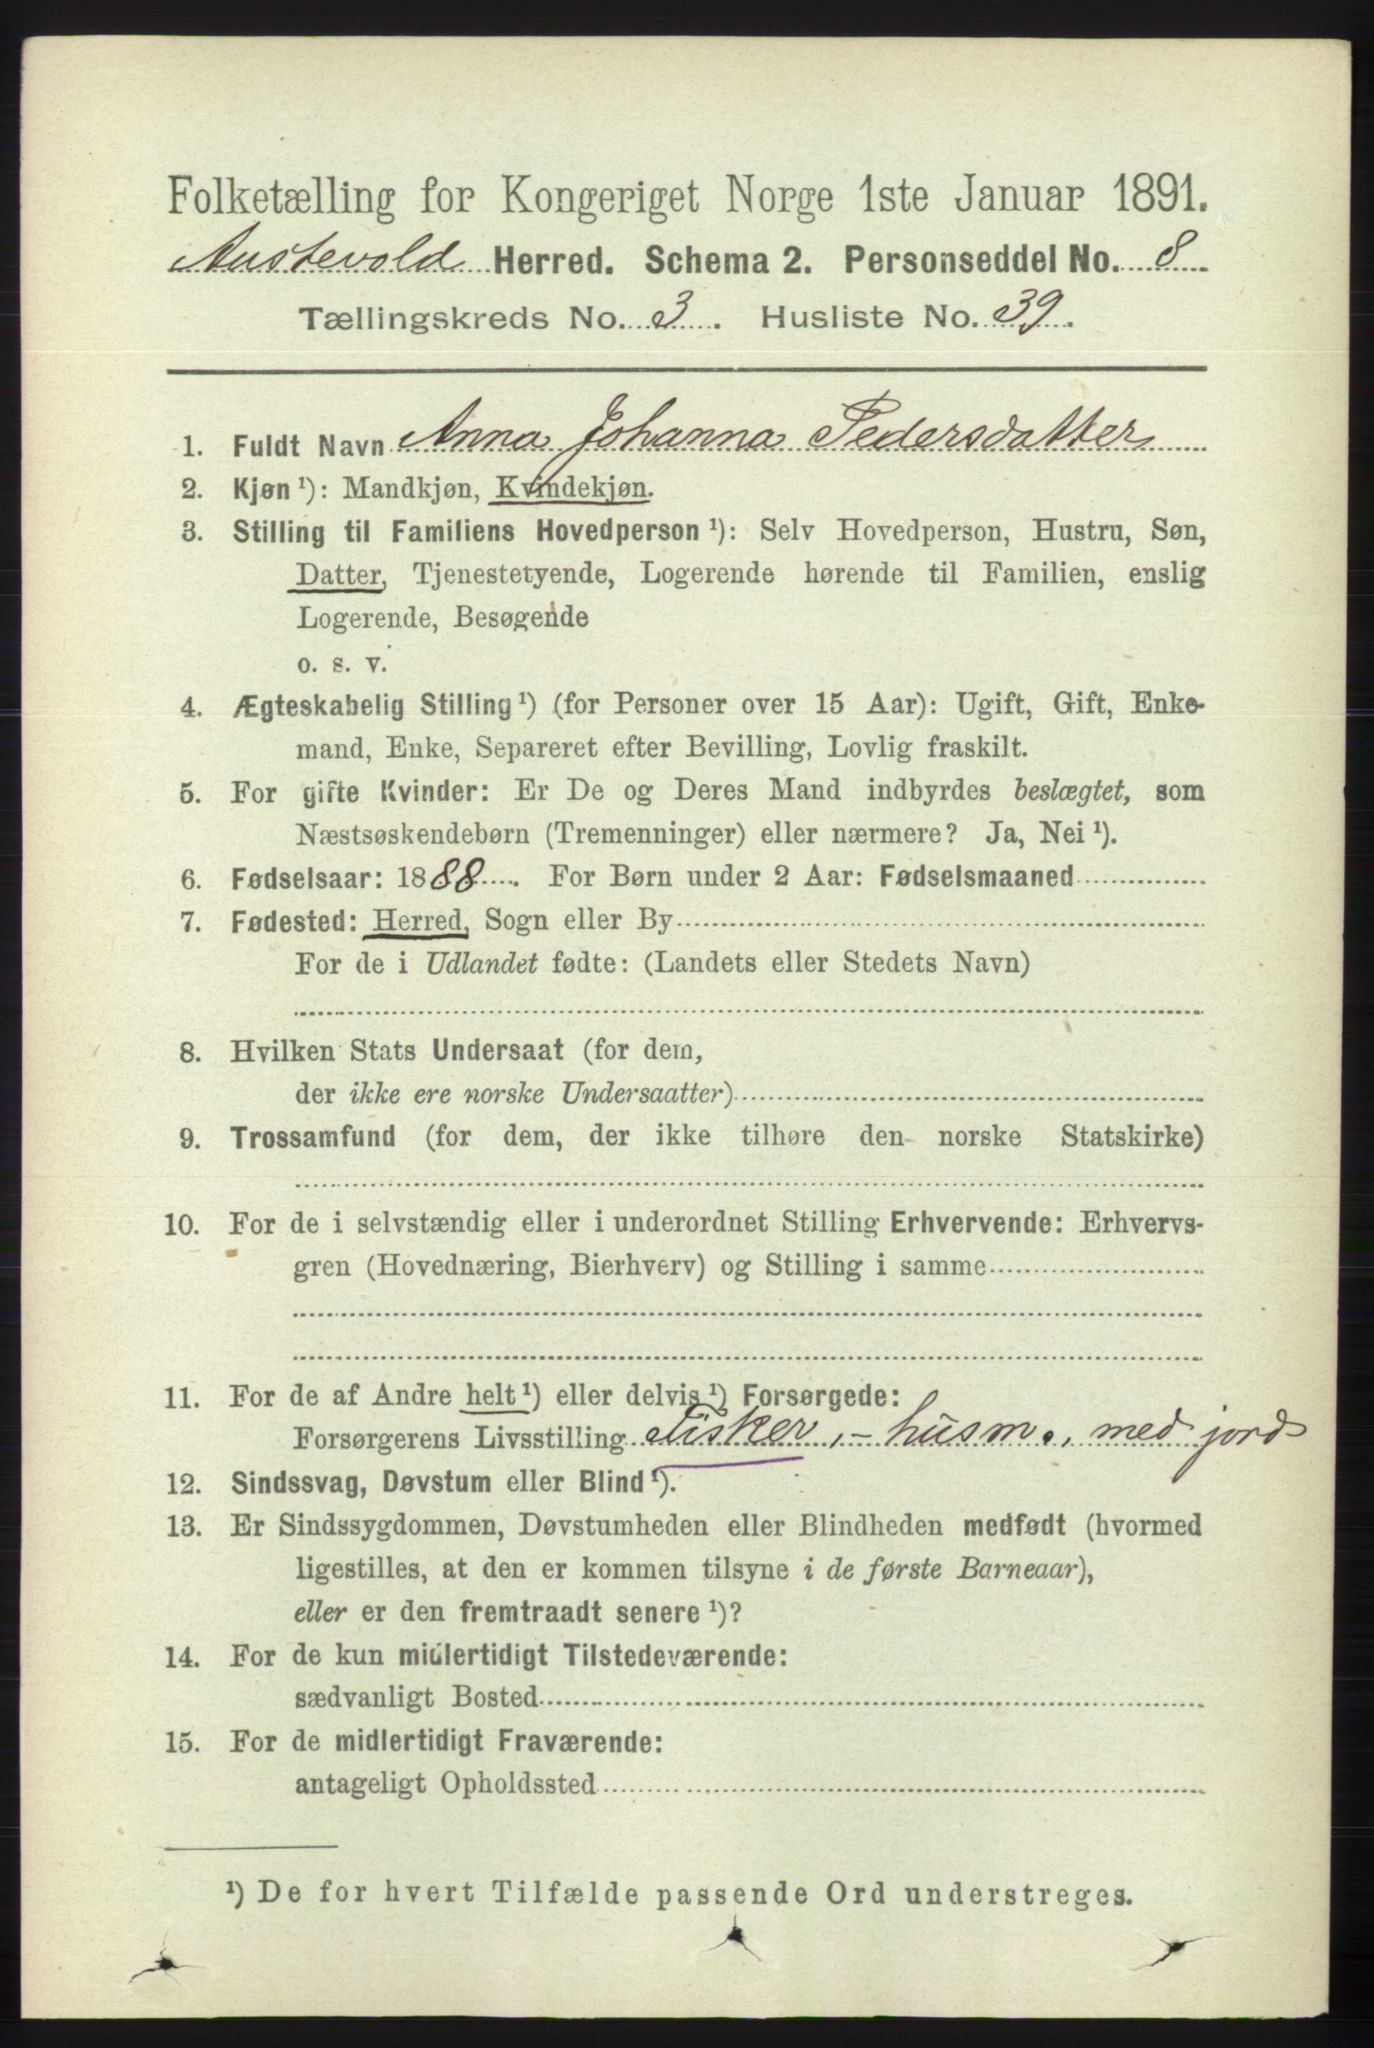 Folketælling for Kongeriget Norge 1ste Januar 1891.
Austevold Herred. Schema 2. Personseddel No. 8
Tællingskreds No. 3. Husliste No. 39.
1. Fuldt Navn Anna Johanna Pedersdatter
2. Kjøn ¹): Mandkjøn, Kvindekjøn.
3. Stilling til Familiens Hovedperson ¹): Selv Hovedperson, Hustru, Søn,
Datter, Tjenestetyende, Logerende hørende til Familien, enslig
Logerende, Besøgende
o. s. v.
4. Ægteskabelig Stilling ¹) (for Personer over 15 Aar): Ugift, Gift, Enke-
mand, Enke, Separeret efter Bevilling, Lovlig fraskilt.
5. For gifte Kvinder: Er De og Deres Mand indbyrdes beslægtet, som
Næstsøskendebørn (Tremenninger) eller nærmere? Ja, Nei ¹).
6. Fødselsaar: 1888. For Børn under 2 Aar: Fødselsmaaned
7. Fødested: Herred, Sogn eller By
For de i Udlandet fødte: (Landets eller Stedets Navn)
8. Hvilken Stats Undersaat (for dem,
der ikke ere norske Undersaatter)
9. Trossamfund (for dem, der ikke tilhøre den norske Statskirke)
10. For de i selvstændig eller i underordnet Stilling Erhvervende: Erhvervs-
gren (Hovednæring, Bierhverv) og Stilling i samme
11. For de af Andre helt ¹) eller delvis ¹) Forsørgede:
Forsørgerens Livsstilling Fisker, - husm., med jord
12. Sindssvag, Døvstum eller Blind ¹).
13. Er Sindssygdommen, Døvstumheden eller Blindheden medfødt (hvormed
ligestilles, at den er kommen tilsyne i de første Barneaar),
eller er den fremtraadt senere ¹)?
14. For de kun midlertidigt Tilstedeværende:
sædvanligt Bosted
15. For de midlertidigt Fraværende:
antageligt Opholdssted
¹) De for hvert Tilfælde passende Ord understreges.